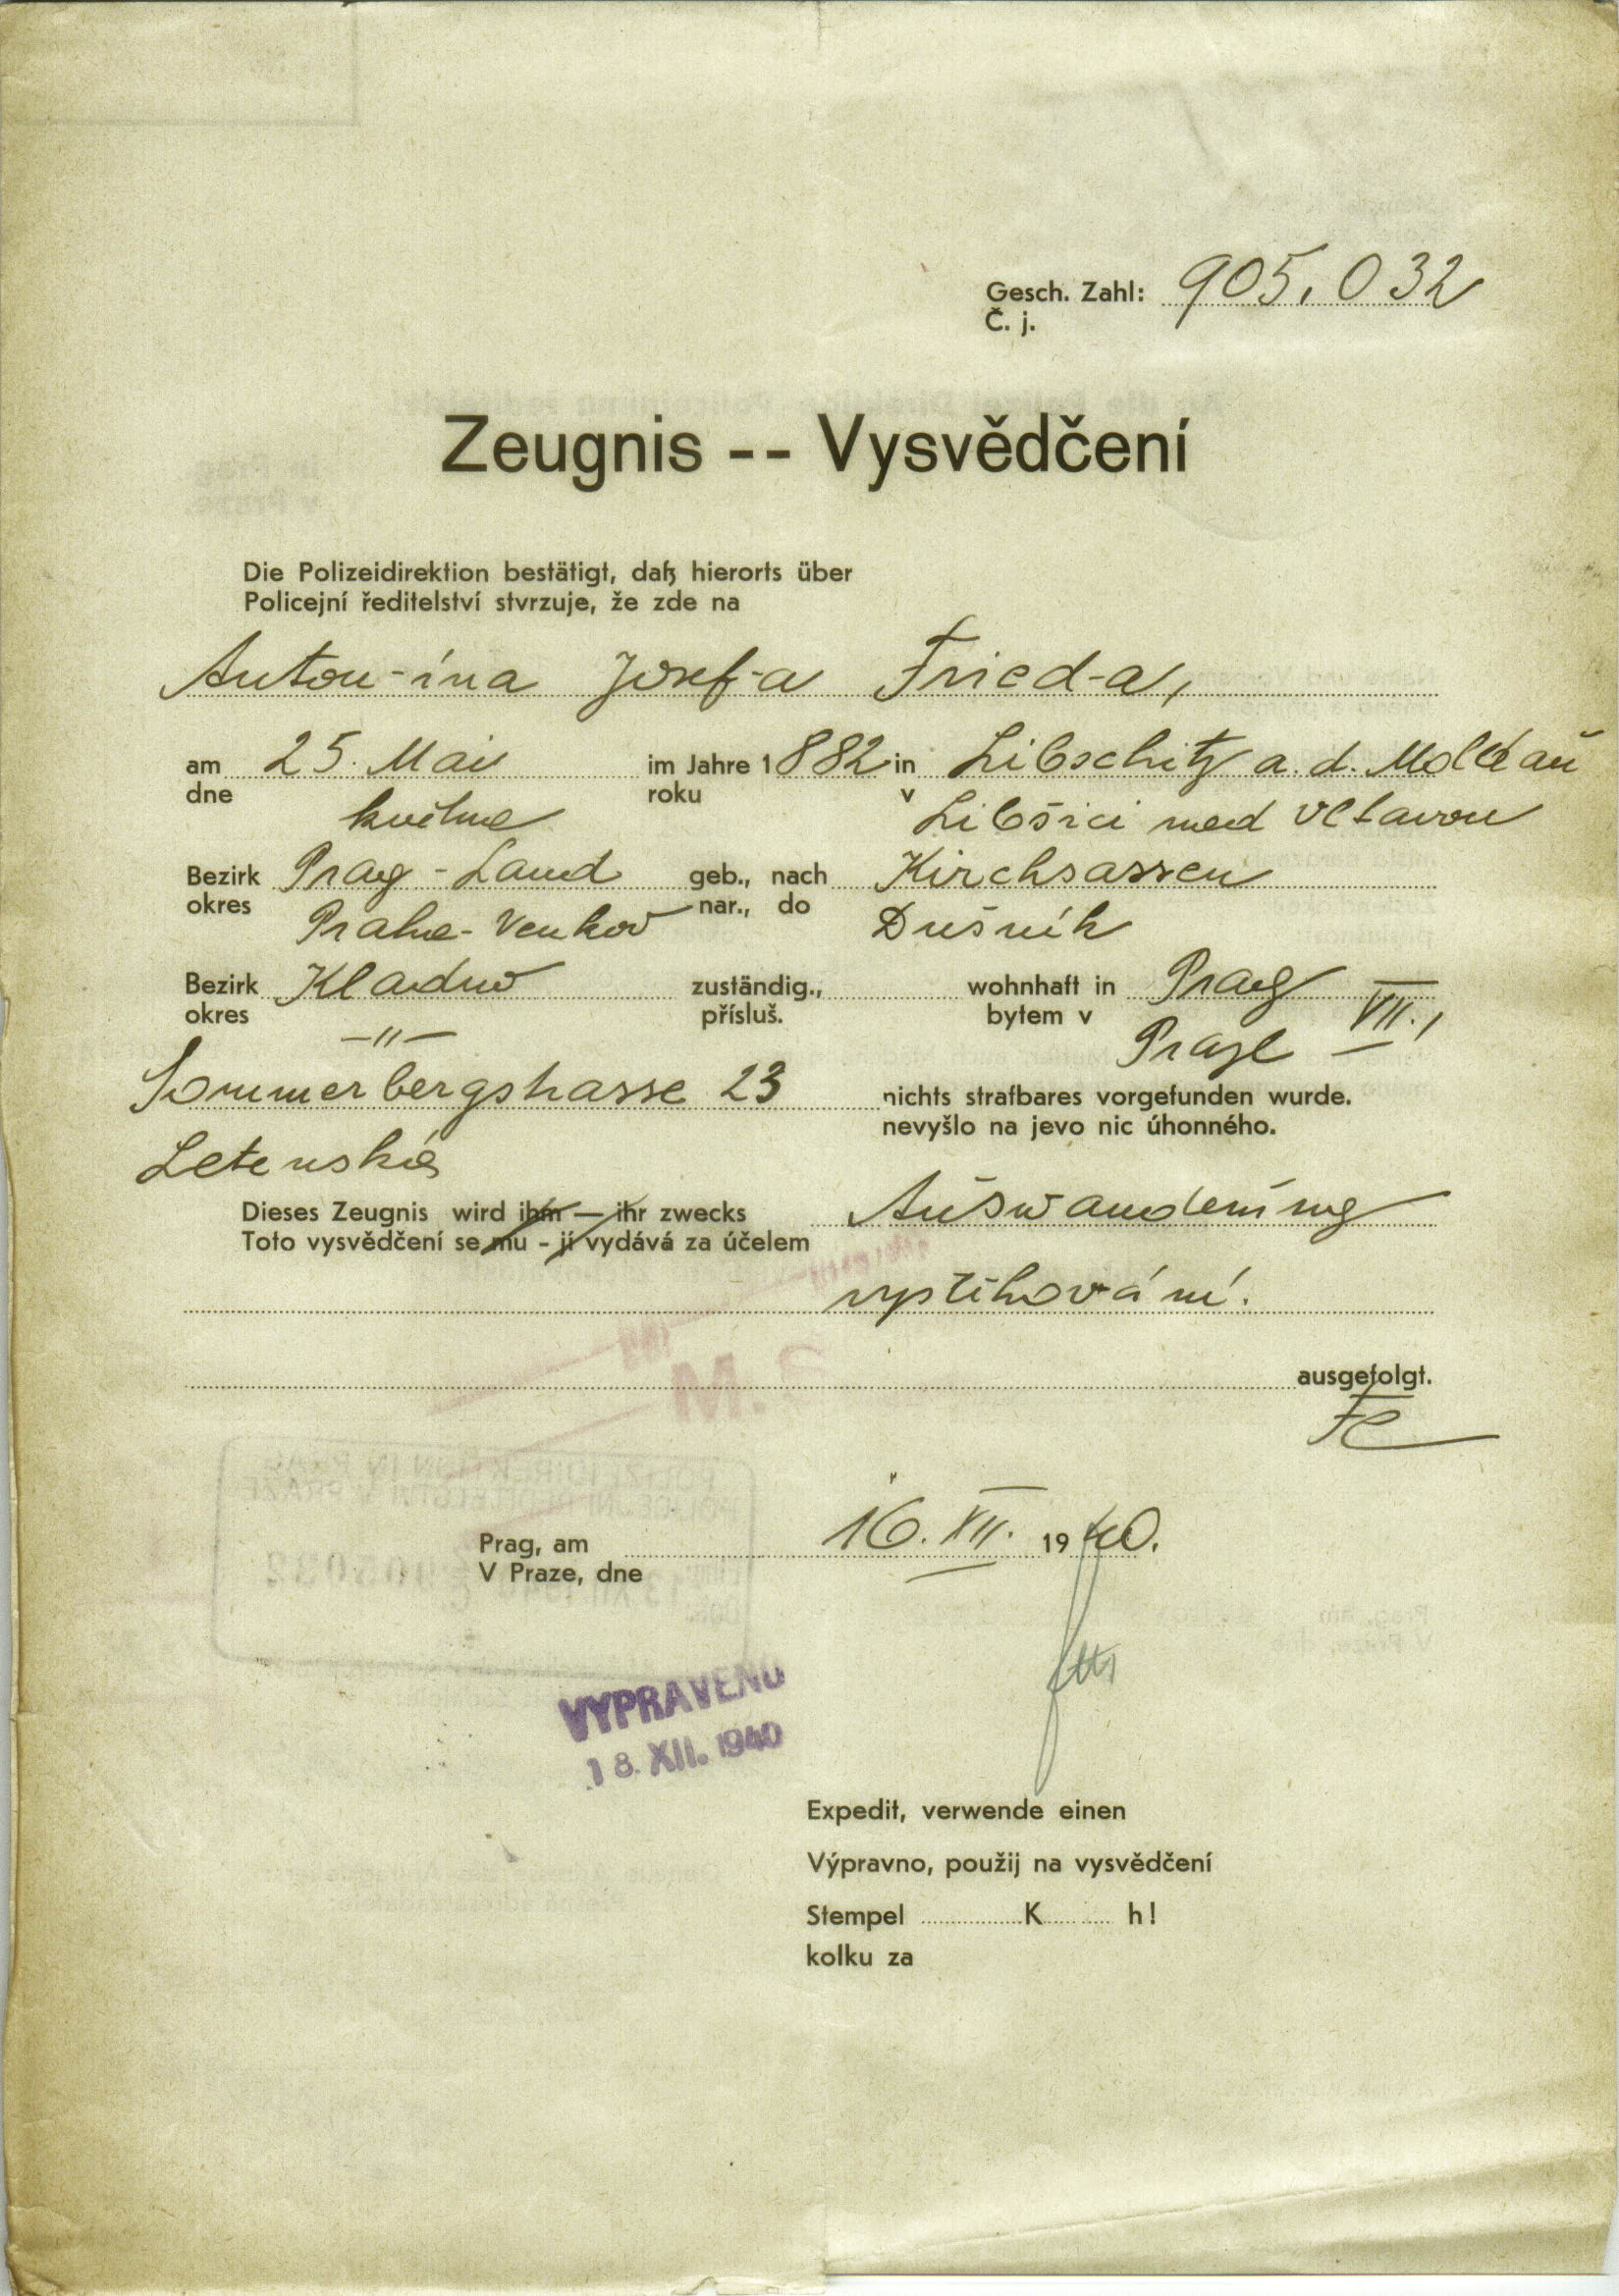 Gesch. Zahl: 905.032
Č. j.
Zeugnis -- Vysvědčení
Die Polizeidirektion bestätigt, daß hierorts über
Policejní ředitelství stvrzuje, že zde na
Anton-ína Josef-a Fried-a,
am 25. Mai im Jahre 1882 in Libschitz a. d. Moldau
dne května roku v Libšici nad Vltavou
Bezirk Prag - Land geb., nach Kirchsassen
okres Praha - Venkov nar., do Dušník
Bezirk Kladno zuständig., wohnhaft in Prag VII.,
okres —"— přísluš. bytem v Praze
Sommerbergstrasse 23 nichts strafbares vorgefunden wurde.
Letenská nevyšlo na jevo nic úhonného.
Dieses Zeugnis wird ihm — ihr zwecks Auswanderung
Toto vysvědčení se mu - jí vydává za účelem
vystěhování.
ausgefolgt.
Prag, am 16. XII. 1940.
V Praze, dne
VYPRAVENO
18. XII. 1940
Expedit, verwende einen
Výpravno, použij na vysvědčení
Stempel K h!
kolku za